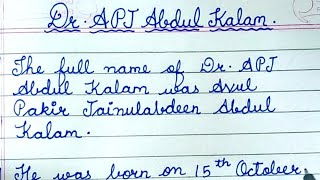 Dr. APJ Abdul Kalam.
The full name of Dr. APJ
Abdul Kalam was Avul
Pakir Jainulabdeen Abdul
Kalam.
He was born on 15th October,